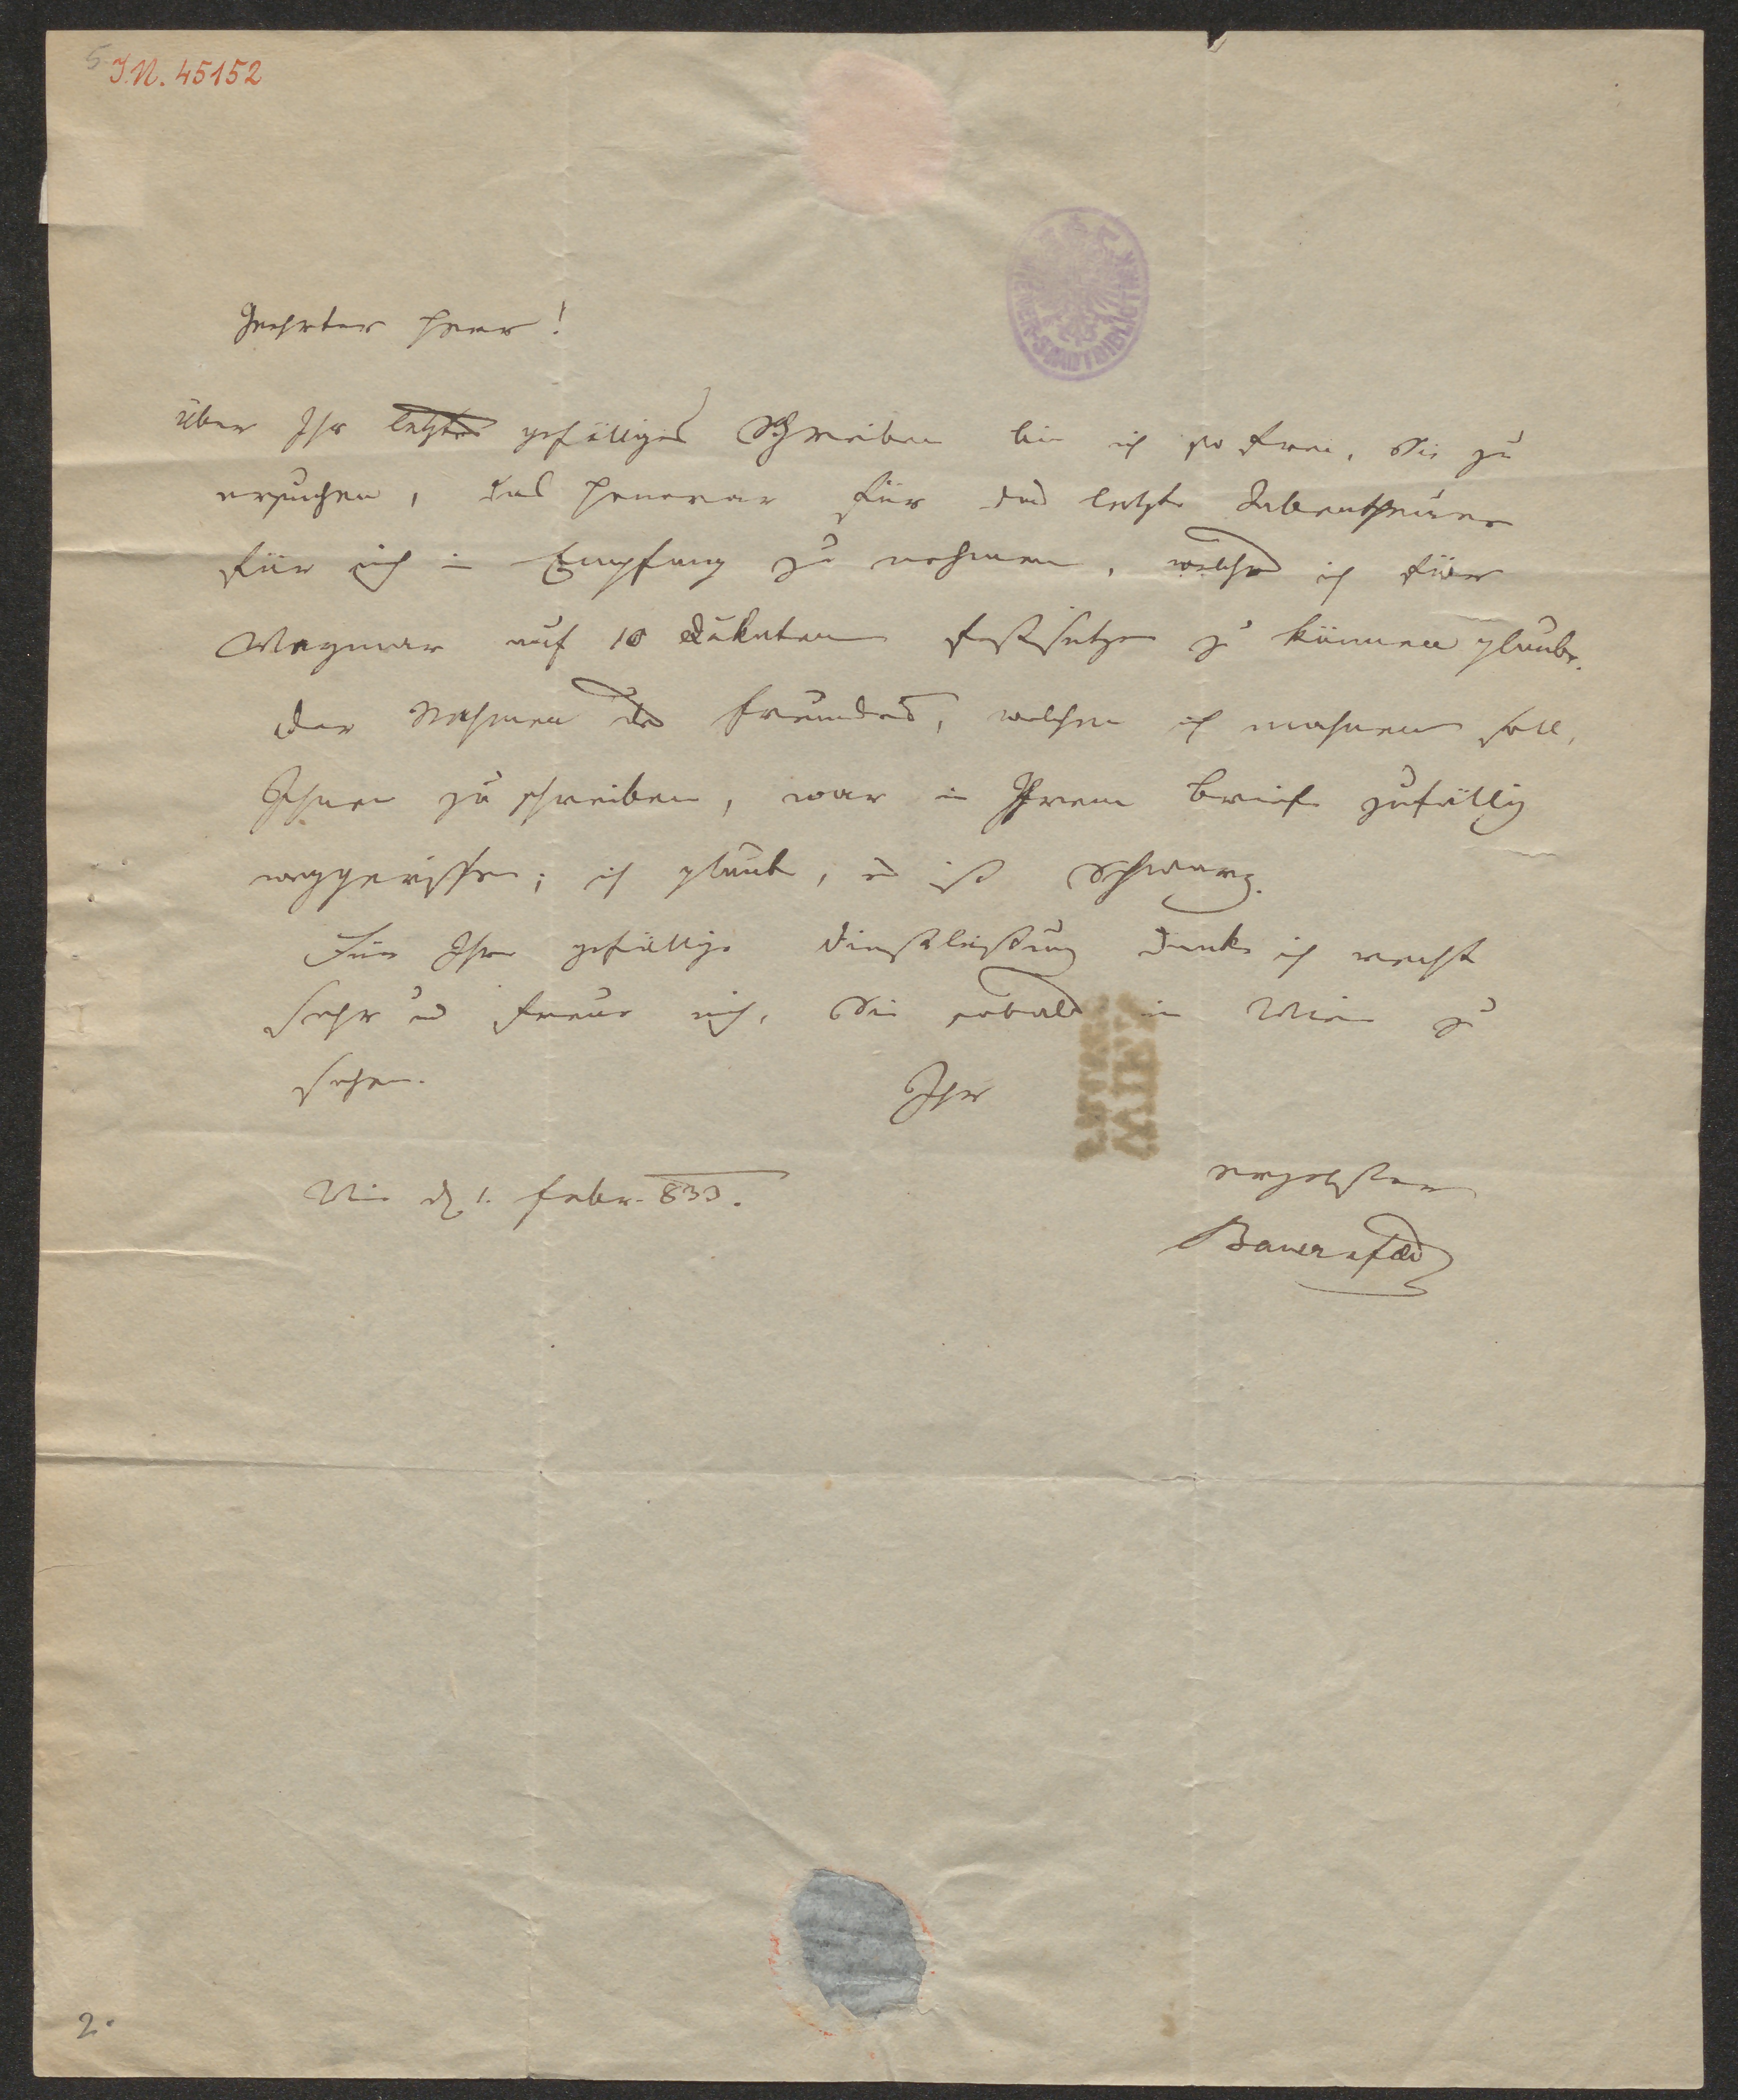 5.
I.N. 45152
WIENER-STADTBIBLIOTHEK
Geehrter Herr!
Über Ihr letztes gefälliges Schreiben bin ich so frei, Sie zu
ersuchen, das Honorar für das letzte Abentheuer
für mich in Empfang zu nehmen, welches ich für
Weymar auf 10 Dukaten festsetzen zu können glaube.
Der Nahmen des Freundes, welchen ich mahnen soll,
Ihnen zu schreiben, war in Ihrem Briefe zufällig
weggerissen; ich glaube, es ist Schwarz.
Für Ihre gefällige Dienstleistung danke ich recht
sehr und freue mich, Sie sobald in Wien zu
sehen.
Ihr
ergebster
Wien d. 1. Febr. 833.
Bauernfeld
WIEN
2.